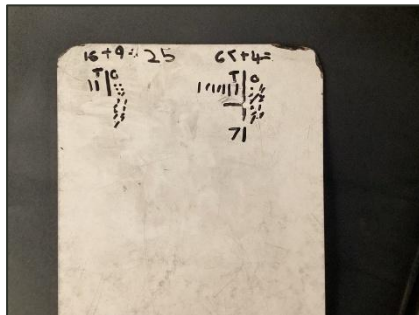 16+9= 25
T O
65+4=
T O
71